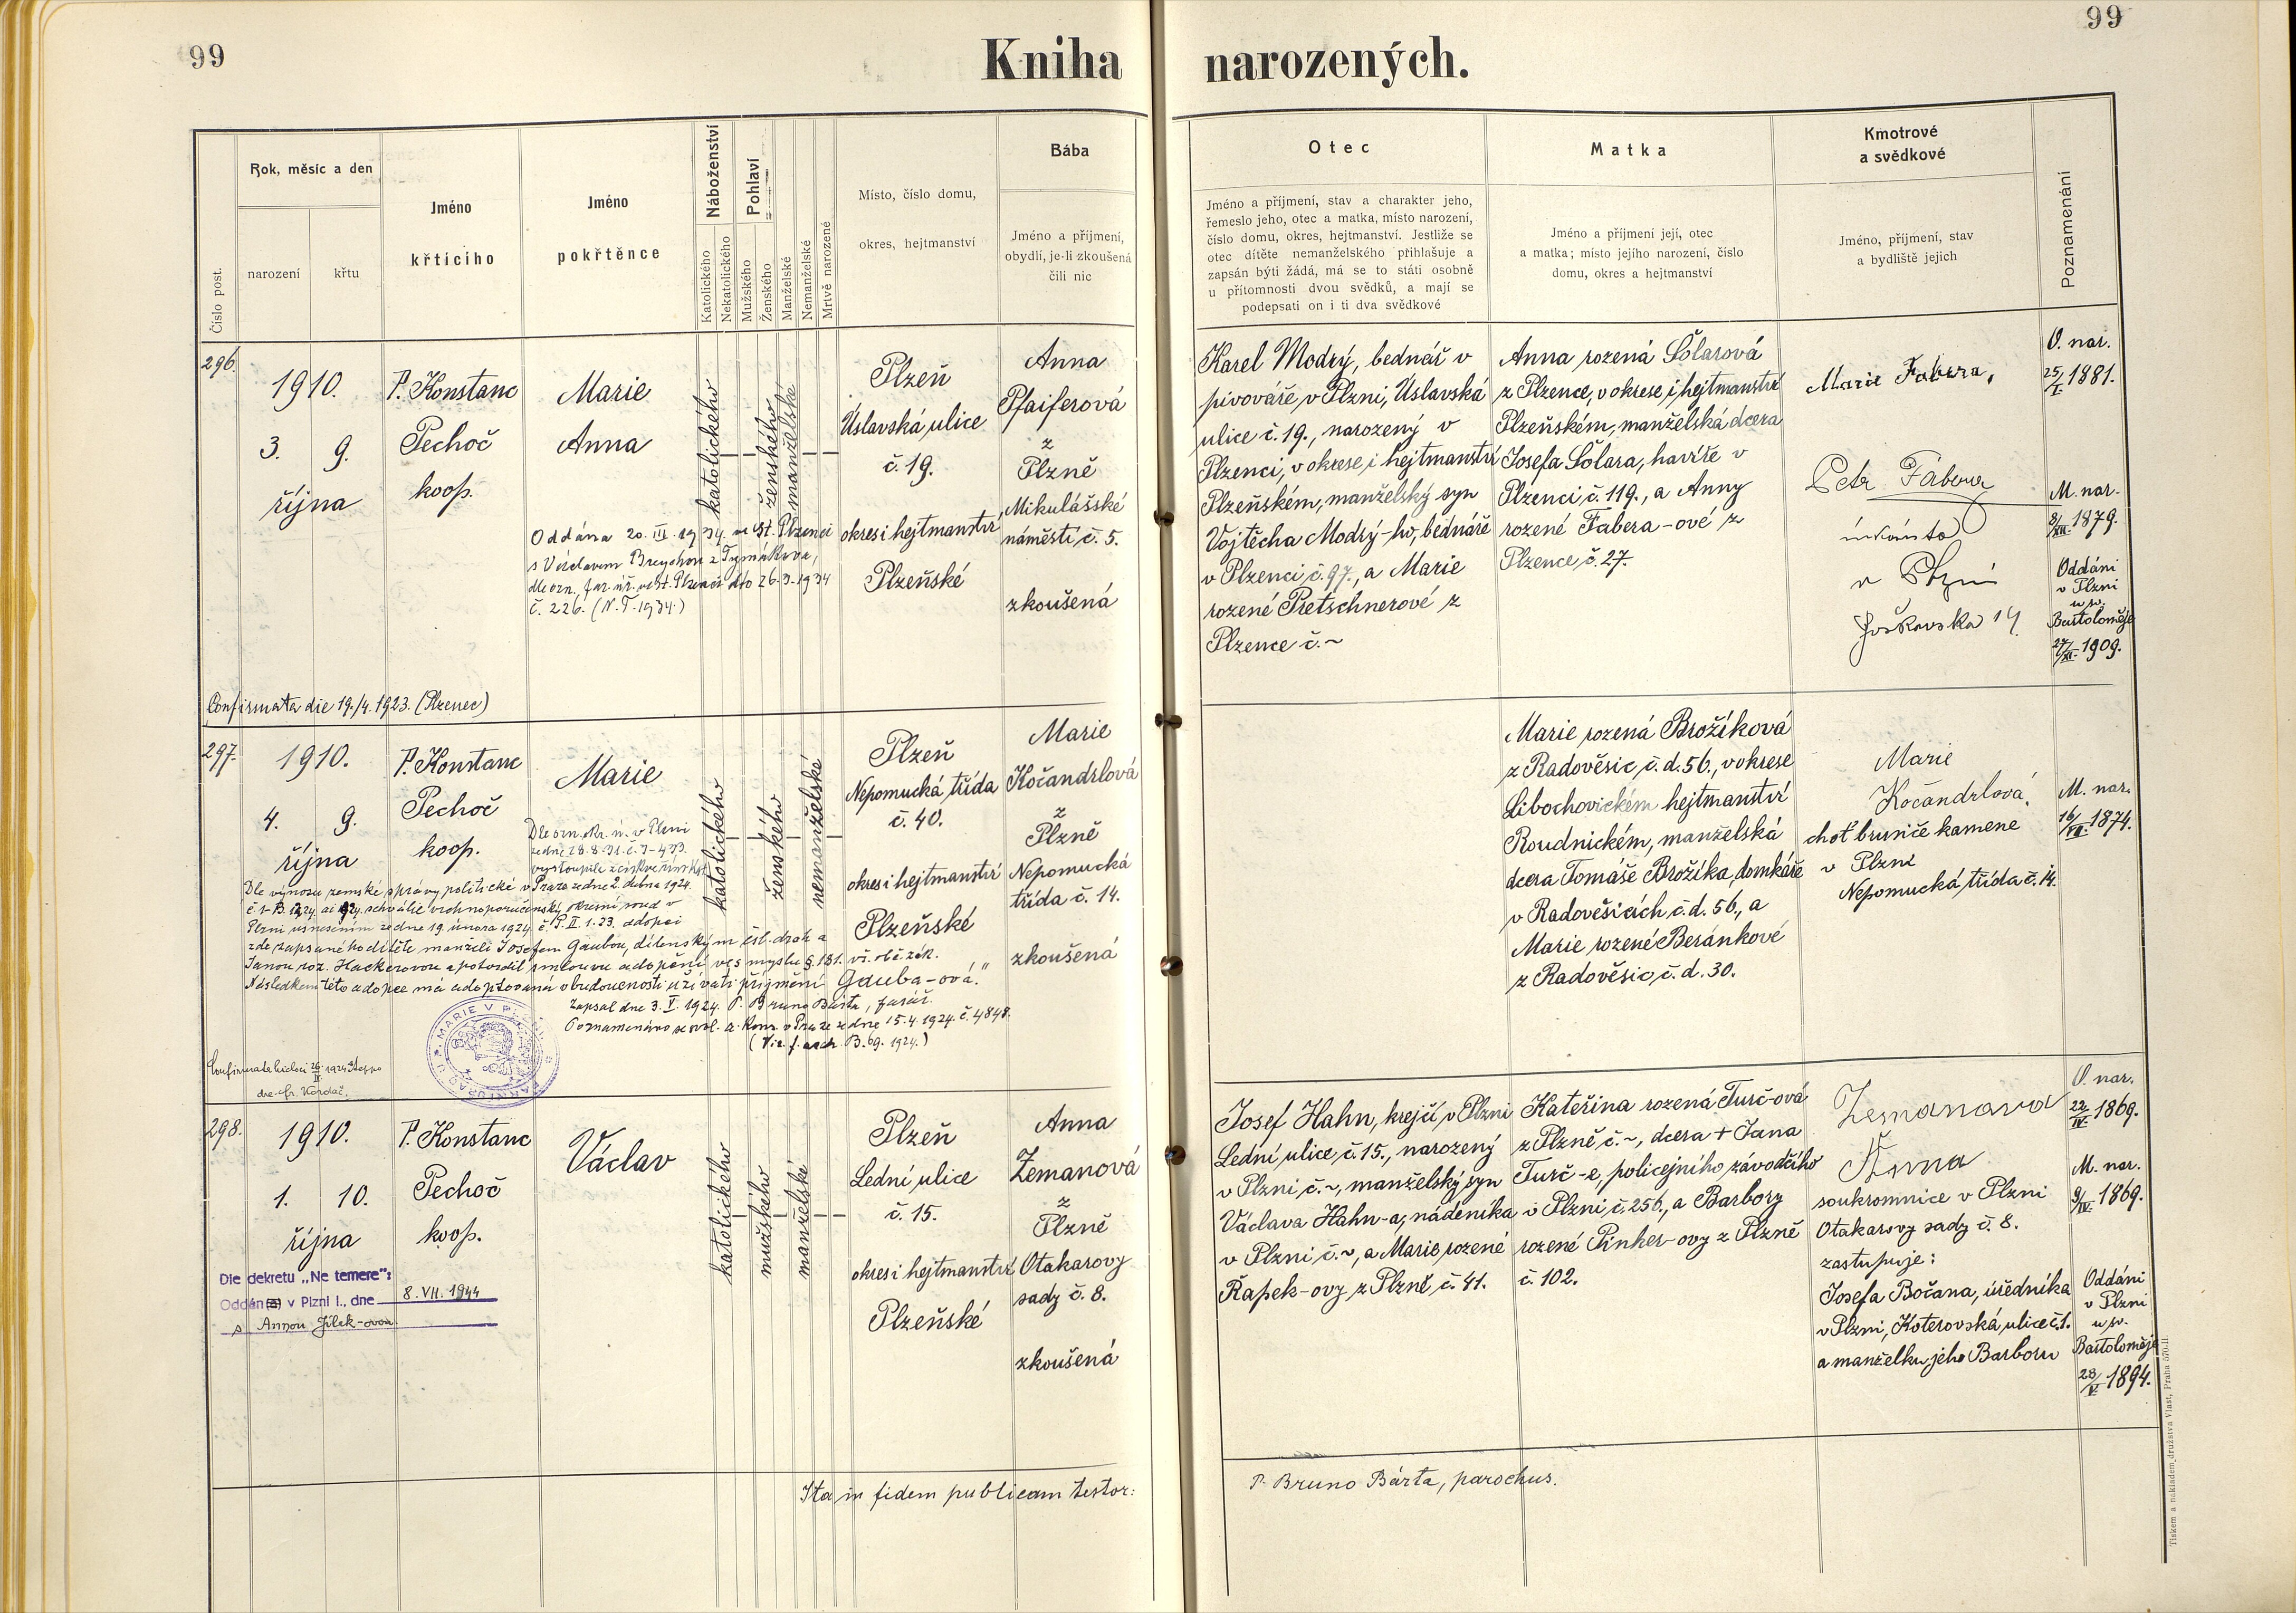 99
Kniha narozených.
99
Číslo post.
Rok, měsíc a den
narození
křtu
Jméno
křtícího
Jméno
pokřtěnce
Náboženství
Katolického
Nekatolického
Pohlaví
Mužského
Ženského
Manželské
Nemanželské
Mrtvě narozené
Místo, číslo domu,
okres, hejtmanství
Bába
Jméno a příjmení,
obydlí, je-li zkoušená
čili nic
Otec
Jméno a příjmení, stav a charakter jeho,
řemeslo jeho, otec a matka, místo narození,
číslo domu, okres, hejtmanství. Jestliže se
otec dítěte nemanželského přihlašuje a
zapsán býti žádá, má se to státi osobně
u přítomnosti dvou svědků, a mají se
podepsati on i ti dva svědkové
Matka
Jméno a příjmení její, otec
a matka; místo jejího narození, číslo
domu, okres a hejtmanství
Kmotrové
a svědkové
Jméno, příjmení, stav
a bydliště jejich
Poznamenání
296.
1910.
3. 9.
října
P. Konstanc
Pechoč
koop.
Marie
Anna
katolického
ženského
manželské
Plzeň
Úslavská ulice
č. 19.
okres i hejtmanství
Plzeňské
Anna
Pfaiferová
z
Plzně
Mikulášské
náměstí č. 5.
zkoušená
Oddána 20. III. 1934. ve St. Plzenci
s Václavem Breychou z Tymákova,
dle ozn. far. úř. ve St. Plzenci dto 26-3-1934
č. 226. (N.T. 1934.)
Confirmata die 19./4. 1923. (Plzenec)
Karel Modrý, bednář v
pivováře v Plzni, Úslavská
ulice č. 19., narozený v
Plzenci, v okrese i hejtmanství
Plzeňském, manželský syn
Vojtěcha Modrý-ho, bednáře
v Plzenci č. 97., a Marie
rozené Pretschnerové z
Plzence č. ~
Anna rozená Šolarová
z Plzence, v okrese i hejtmanství
Plzeňském, manželská dcera
Josefa Šolara, havíře v
Plzenci č. 119., a Anny
rozené Fabera-ové z
Plzence č. 27.
Marie Fabera,
Petr Fabera
v Plzni
14.
O. nar.
25/I. 1881.
M. nar.
8/XII. 1879.
Oddáni
v Plzni
u sv.
Bartoloměje
27/XI. 1909.
297.
1910.
4. 9.
října
P. Konstanc
Pechoč
koop.
Marie
katolického
ženského
nemanželské
Plzeň
Nepomucká třída
č. 40.
okres i hejtmanství
Plzeňské
Marie
Kočandrlová
z
Plzně
Nepomucká
třída č. 14.
zkoušená
Dle ozn. okr. ú. v Plzni
ze dne 28.8.31. č. 9-433.
vystoupila z církve řím. kat.
Dle výnosu zemské správy politické v Praze ze dne 2. dubna 1924.
schválil vrchnoporučenský okresní soud v
Plzni usnesením ze dne 19. února 1924 č. P. II. 1.23. adopci
zde zapsaného dítěte manželi Josefem Gaubou, dílenským čsl. drah a
Janou roz. Hackerovou a potvrdil smlouvu adopční ve smyslu §. 181. vš. obč. zák.
Následkem této adopce má adoptovaná v budoucnosti užívati příjmení „Gauba-ová."
Zapsal dne 3. V. 1924. P. Bruno Bárta, farář.
Poznamenáno se svol. a. kons. v Praze ze dne 15. 4. 1924. č. 4848.
(Viz f. arch. B. 69. 1924.)
Marie rozená Brožíková
z Radověsic, č. d. 56., v okrese
Libochovickém hejtmanství
Roudnickém, manželská
dcera Tomáše Brožíka, domkáře
v Radověsicích, č. d. 56., a
Marie rozené Beránkové
z Radověsic, č. d. 30.
Marie
Kočandrlová,
choť brusiče kamene
v Plzni
Nepomucká třída č. 14.
M. nar.
16/VII. 1874.
298.
1910.
1. 10.
října
P. Konstanc
Pechoč
koop.
Václav
katolického
mužského
manželské
Plzeň
Lední ulice
č. 15.
okres i hejtmanství
Plzeňské
Anna
Zemanová
z
Plzně
Otakarovy
sady č. 8.
zkoušená
Dle dekretu „Ne temere":
Oddán v Plzni I., dne 8. VII. 1944
s Annou Jílek-ovou
Josef Hahn, krejčí, v Plzni
Lední ulice č. 15., narozený
v Plzni č. ~, manželský syn
Václava Hahn-a, nádeníka
v Plzni č. ~, a Marie, rozené
Řapek-ovy z Plzně č. 41.
Kateřina rozená Turč-ová
z Plzně č. ~, dcera + Jana
Turč-e, policejního závodčího
v Plzni č. 256., a Barbory
rozené Pinker-ovy z Plzně
č. 102.
Zemanova
Anna
soukromnice v Plzni
Otakarovy sady č. 8.
zastupuje:
Josefa Bočana, úředníka
v Plzni, Koterovská ulice č. 1.
a manželku jeho Barboru
O. nar.
22/IV. 1869.
M. nar.
9/IV. 1869.
Oddáni
v Plzni
u sv.
Bartoloměje
28/V. 1894.
Ita in fidem publicam testor:
P. Bruno Bárta, parochus.
Tiskem a nákladem družstva Vlast, Praha 570-II.